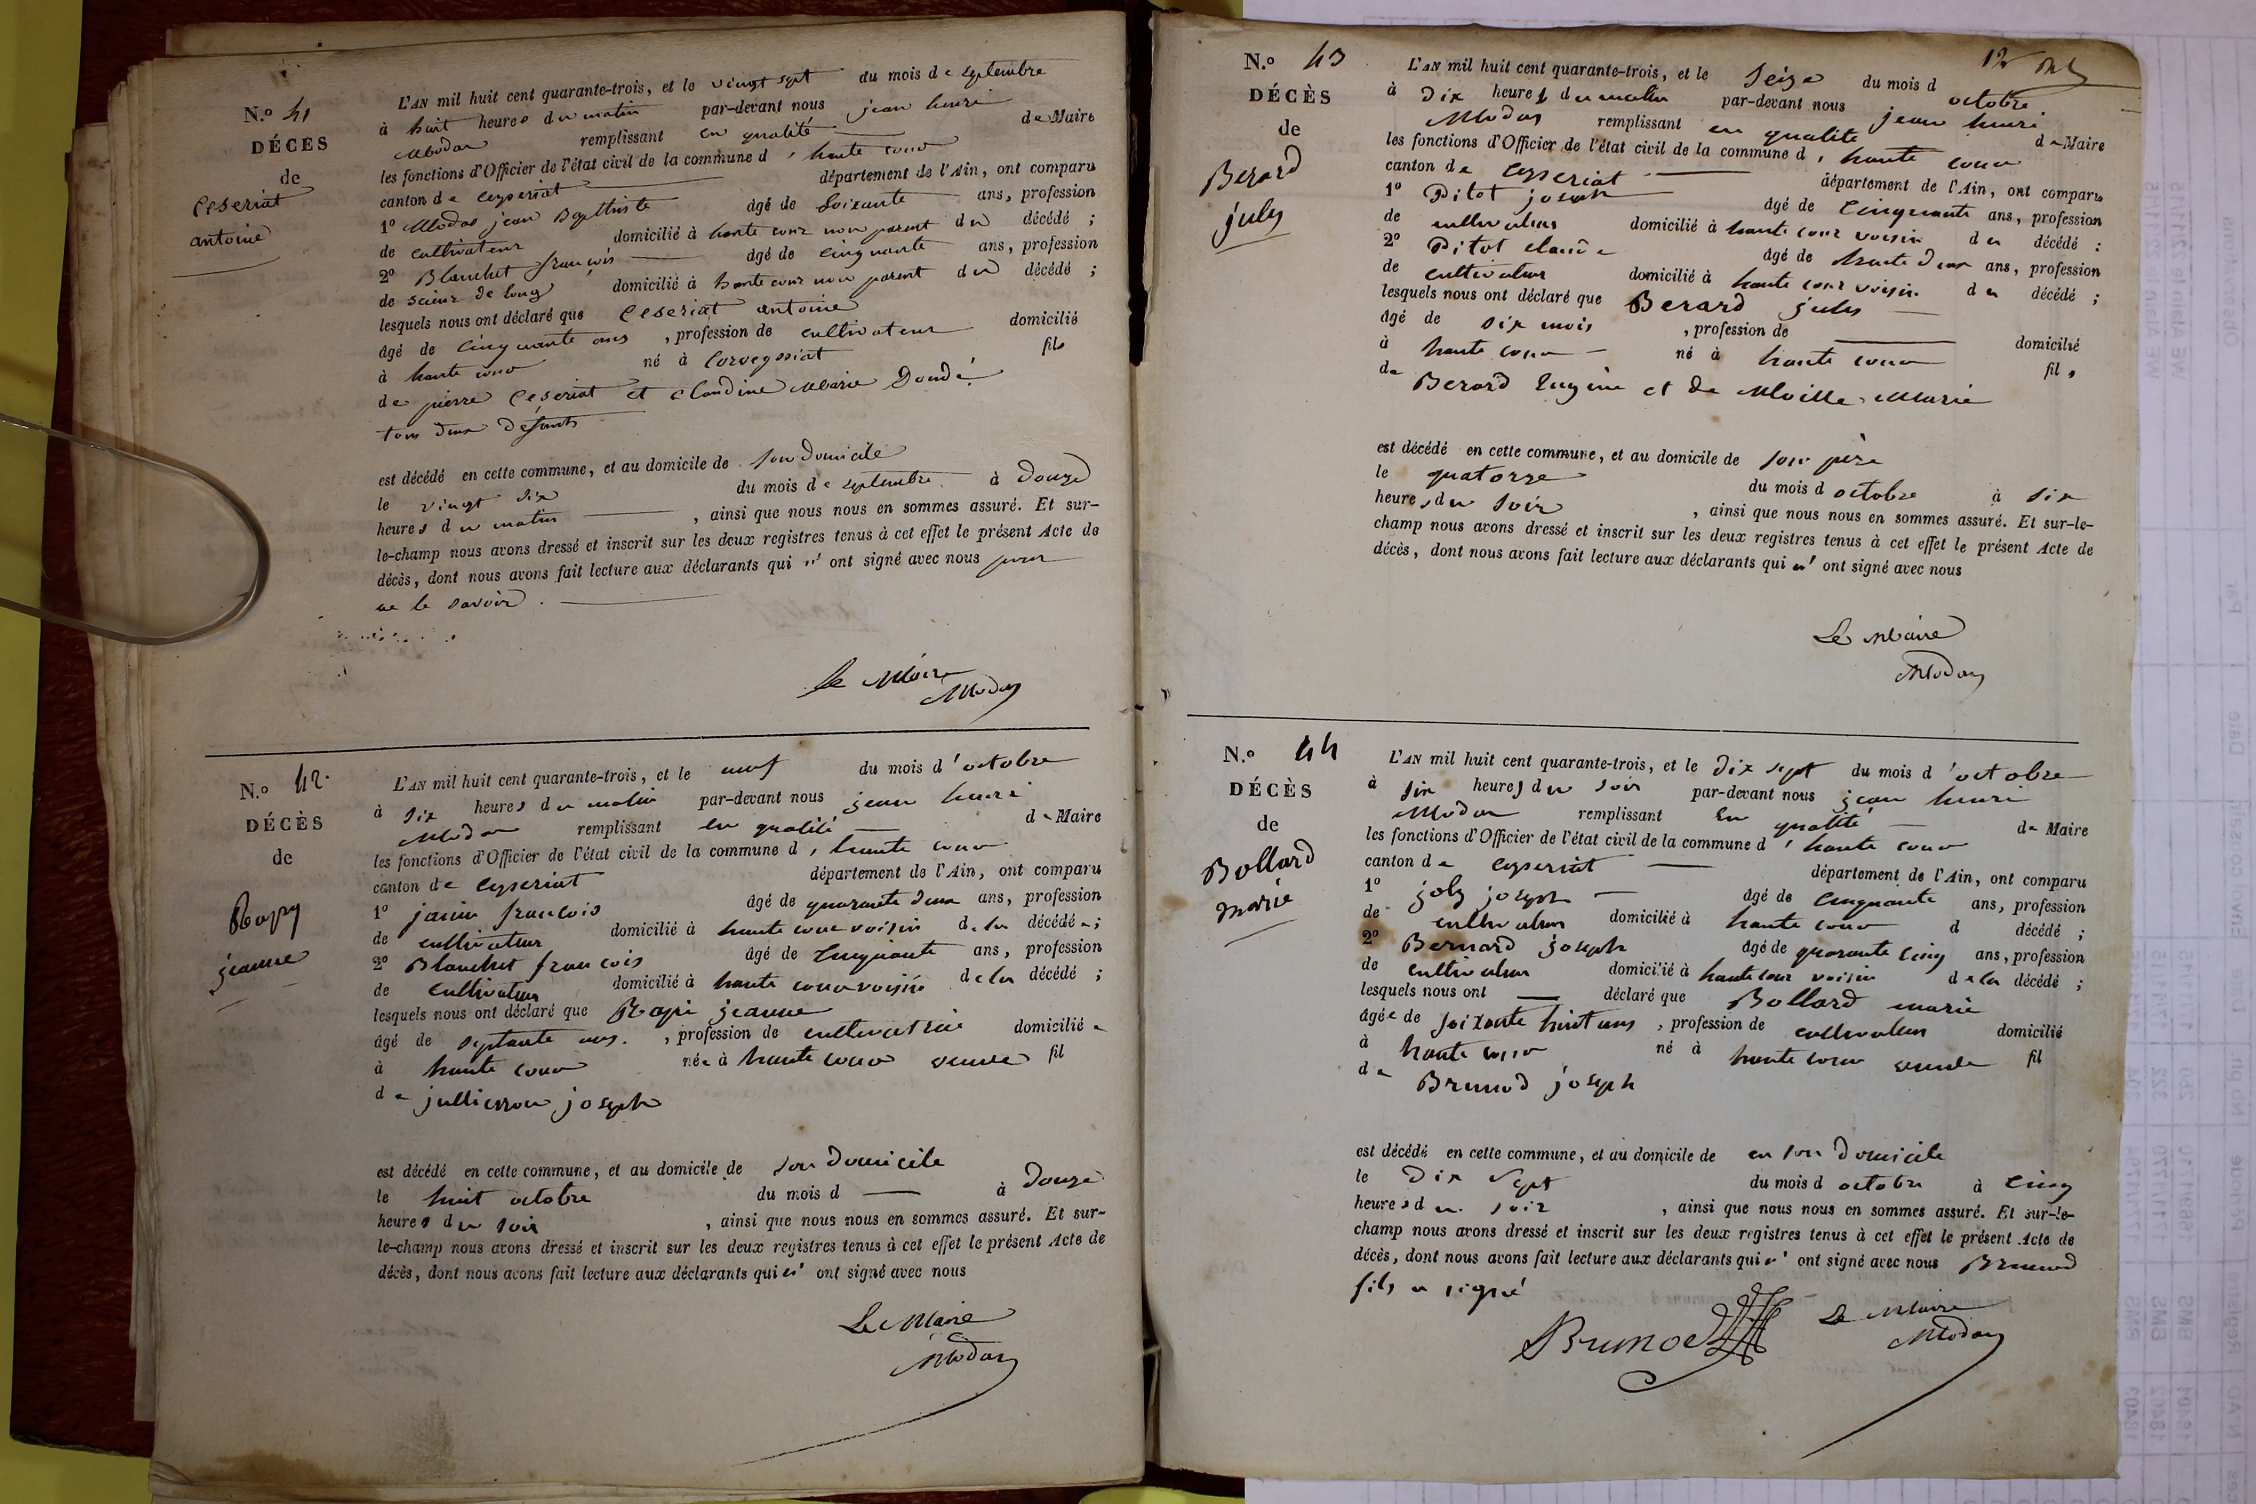 N.o 41
DÉCÈS
de
Ceseriat
antoine
L'AN mil huit cent quarante-trois, et le vingt sept du mois de septembre
à huit heures du matin par-devant nous jean henri
Modas remplissant en qualité de Maire
les fonctions d'Officier de l'état civil de la commune d'haute cour
canton de ceyseriat département de l'Ain, ont comparu
1º Modas jean Baptiste âgé de soixante ans, profession
de cultivateur domicilié à haute cour non parent du décédé ;
2º Blanchet françois âgé de cinquante ans, profession
de scieur de long domicilié à haute cour non parent du décédé ;
lesquels nous ont déclaré que Ceseriat antoine
âgé de cinquante ans , profession de cultivateur domicilié
à haute cour né à Corvegssiat fils
de pierre Ceseriat et claudine Marie
tous deux défunts
est décédé en cette commune, et au domicile de son Domicile
le vingt six du mois de septembre à Douze
heures du matin , ainsi que nous nous en sommes assuré. Et sur-
le-champ nous avons dressé et inscrit sur les deux registres tenus à cet effet le présent Acte de
décès, dont nous avons fait lecture aux déclarants qui n' ont signé avec nous pour
ne le savoir.
le Maire
Modas
N.o 42.
DÉCÈS
de
Rapy
jeanne
L'AN mil huit cent quarante-trois, et le neuf du mois d'octobre
à six heures du matin par-devant nous jean henri
Modas remplissant en qualité de Maire
les fonctions d'Officier de l'état civil de la commune d'haute cour
canton de ceyseriat département de l'Ain, ont comparu
1º janin francois âgé de quarante deux ans, profession
de cultivateur domicilié à haute cour voisin de la décédée ;
2º Blanchet francois âgé de Cinquante ans, profession
de cultivateur domicilié à haute cour voisin de la décédé ;
lesquels nous ont déclaré que Rapi jeanne
âgé de septante ans. , profession de cultivatrice domiciliée
à haute cour née à haute cour veuve fil
de jullieron joseph
est décédé en cette commune, et au domicile de son Domicile
le huit octobre du mois d à Douze
heures du soir , ainsi que nous nous en sommes assuré. Et sur-
le-champ nous avons dressé et inscrit sur les deux registres tenus à cet effet le présent Acte de
décès, dont nous avons fait lecture aux déclarants qui n' ont signé avec nous
Le Maire
Modas
12
N.o 43
DÉCÈS
de
Berard
jules
L'AN mil huit cent quarante-trois, et le seize du mois d octobre
à dix heures du matin par-devant nous jean henri
Modas remplissant en qualité de Maire
les fonctions d'Officier de l'état civil de la commune d'haute cour
canton de ceyseriat département de l'Ain, ont comparu
1º Pitot joseph âgé de Cinquante ans, profession
de cultivateur domicilié à haute cour voisin du décédé ;
2º Pitot claude âgé de trente deux ans, profession
de cultivateur domicilié à haute cour voisin du décédé ;
lesquels nous ont déclaré que Berard jules
âgé de six mois , profession de domicilié
à haute cour né à haute cour fils
de Berard Eugène et de Marie
est décédé en cette commune, et au domicile de son père
le quatorze du mois d octobre à six
heures du soir , ainsi que nous nous en sommes assuré. Et sur-le-
champ nous avons dressé et inscrit sur les deux registres tenus à cet effet le présent Acte de
décès, dont nous avons fait lecture aux déclarants qui n' ont signé avec nous
Le Maire
Modas
N.o 44
DÉCÈS
de
Bollard
marie
L'AN mil huit cent quarante-trois, et le dix sept du mois d'octobre
à six heures du soir par-devant nous jean henri
Modas remplissant en qualité de Maire
les fonctions d'Officier de l'état civil de la commune d'haute cour
canton de ceyseriat département de l'Ain, ont comparu
1º joly joseph âgé de Cinquante ans, profession
de cultivateur domicilié à haute cour d décédé ;
2º Bernard joseph âgé de quarante cinq ans, profession
de cultivateur domicilié à haute cour voisin de la décédé ;
lesquels nous ont déclaré que Bollard marie
âgée de soixante huit ans , profession de cultivateur domicilié
à haute cour né à haute cour veuve fil
de Brunod joseph
est décédé en cette commune, et au domicile de en son Domicile
le Dix Sept du mois d octobre à Cinq
heures du soir , ainsi que nous nous en sommes assuré. Et sur-le-
champ nous avons dressé et inscrit sur les deux registres tenus à cet effet le présent Acte de
décès, dont nous avons fait lecture aux déclarants qui n' ont signé avec nous Brunod
fils a signé
Brunod Le Maire
Modas